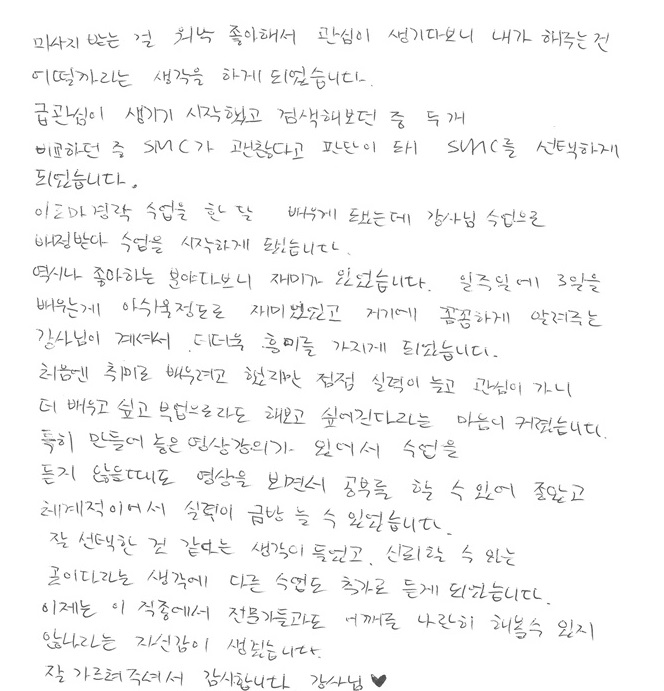 마사지 받는 걸 워낙 좋아해서 관심이 생기다보니 내가 해주는건
어떨까라는 생각을 하게 되었습니다.
급관심이 생기기 시작했고 검색해보던 중 두개
비교하던 중 SMC가 괜찮다고 판단이 돼서 SMC를 선택하게
되었습니다.
아로마경락 수업을 한 달 배우게 됐는데 강사님 수업으로
배정받아 수업을 시작하게 됐습니다.
역시나 좋아하는 분야다보니 재미가 있었습니다. 일주일에 3일을
배우는게 아쉬울정도로 재미있었고 거기에 꼼꼼하게 알려주는
강사님이 계셔서 더더욱 흥미를 가지게 되었습니다.
처음엔 취미로 배우려고 했지만 점점 실력이 늘고 관심이 가니
더 배우고 싶고 부업으로라도 해보고 싶어진다라는 마음이 커졌습니다.
특히 만들어 놓은 영상강의가 있어서 수업을
듣지 않을때도 영상을 보면서 공부를 할 수 있어 좋았고
체계적이어서 실력이 금방 늘 수 있었습니다.
잘 선택한 것 같다는 생각이 들었고, 신뢰할 수 있는
곳이다라는 생각에 다른 수업도 추가로 듣게 되었습니다.
이제는 이 직종에서 전문가들과도 어깨를 나란히 해볼수 있지
않나라는 자신감이 생겼습니다.
잘 가르쳐주셔서 감사합니다 강사님 ♥